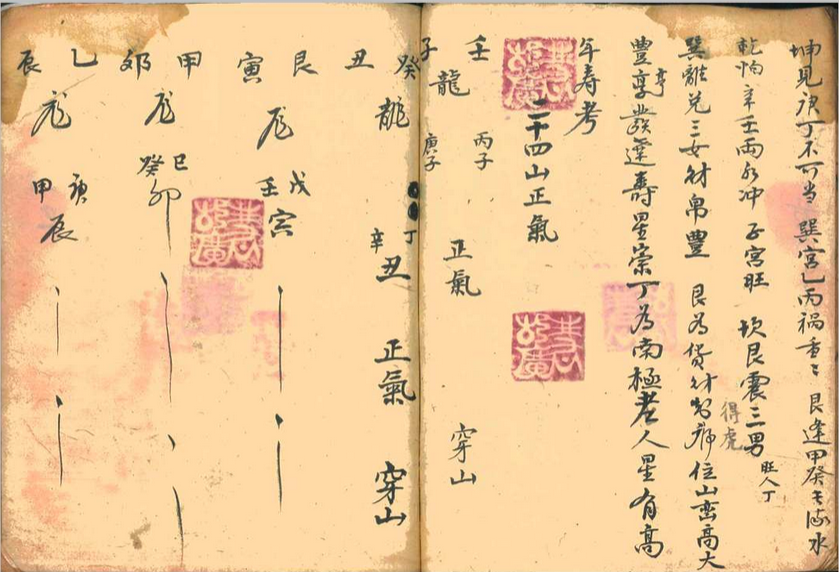 坤見庚丁不可当 巽宫乙丙禍重〻 艮逢甲癸水
乾怕辛壬兩水冲 子宫旺 坎艮震三男 旺人丁
得虎
巽離兌三女財帛豐 艮為貨財位山峦高大
豐享發達壽星崇丁為南極老人星有高
亨
年寿考
二十四山正氣
壬子龍 丙子 庚子 正氣 穿山
癸丑龍 丁辛丑 正氣 穿山
艮寅龙 戊壬寅
甲卯龙 己癸卯
乙辰龙 庚甲辰